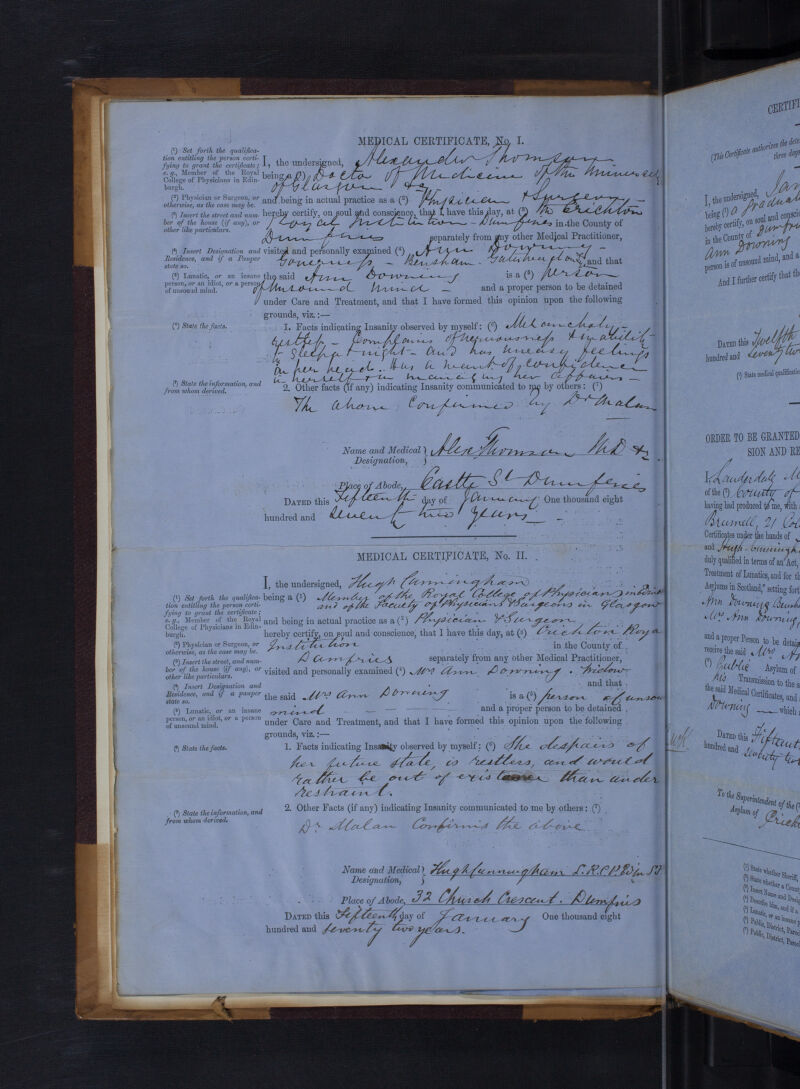 MEDICAL CERTIFICATE, No. I.
(1) Set forth the qualifica-
tion entitling the person certi-
fying to grant the certificate;
e.g., Member of the Royal
College of Physicians in Edin-
burgh.
I, the undersigned, Alexander Thomson
being a (1) Doctor of Medicine of the University
of Glasgow &c
(2) Physician or Surgeon, or
otherwise, as the case may be.
and being in actual practice as a (2) Physician & Surgeon
(3) Insert the street and num-
ber of the house (if any), or
other like particulars.
hereby certify, on soul and conscience, that I have this day, at (3) the Crichton
Royal Institution - Dumfries in the County of
Dumfries separately from any other Medical Practitioner,
(4) Insert Designation and
Residence, and if a Pauper
state so.
visited and personally examined (4) Ann Downing -
Governess - Bensham - Gateshead and that
(5) Lunatic, or an insane
person, or an idiot, or a person
of unsound mind.
the said Ann Downing is a (5) person
of unsound mind - and a proper person to be detained
under Care and Treatment, and that I have formed this opinion upon the following
grounds, viz.:—
(6) State the facts.
1. Facts indicating Insanity observed by myself: (6) Melancholy -
restless - Complains of nervousness & inability
to sleep at night - and has uneasy feelings
in her head. Has a want of confidence
in herself & in managing her affairs -
(7) State the information, and
from whom derived.
2. Other facts (if any) indicating Insanity communicated to me by others: (7)
The above confirmed by Dr Malan
Name and Medical
Designation,
Alex Thomson M.D &c.
Place of Abode, Castle St Dumfries
DATED this Fifteenth day of January One thousand eight
hundred and seventy two years -
MEDICAL CERTIFICATE, No. II.
I, the undersigned, Hugh Cunningham
(1) Set forth the qualifica-
tion entitling the person certi-
fying to grant the certificate;
e.g., Member of the Royal
College of Physicians in Edin-
burgh.
being a (1) Member of the Royal College of Physicians in Edinr
and of the Faculty of Physicians & Surgeons in Glasgow
and being in actual practice as a (2) Physician & Surgeon
(2) Physician or Surgeon, or
otherwise, as the case may be.
hereby certify, on soul and conscience, that I have this day, at (3) Crichton Roya
Institution in the County of
(3) Insert the street, and num-
ber of the house (if any), or
other like particulars.
Dumfries separately from any other Medical Practitioner,
visited and personally examined (4) Mrs Ann Downing . Widow
(4) Insert Designation and
Residence, and if a pauper
state so.
and that
the said Mrs Ann Downing is a (5) person of unsou
(5) Lunatic, or an insane
person, or an idiot, or a person
of unsound mind.
mind and a proper person to be detained
under Care and Treatment, and that I have formed this opinion upon the following
grounds, viz.:—
(6) State the facts.
1. Facts indicating Insanity observed by myself: (6) She despairs of
her future state, is restless, and would
rather be out of existence than under
restraint.
(7) State the information, and
from whom derived.
2. Other Facts (if any) indicating Insanity communicated to me by others: (7)
Dr Malan Confirms the above
Name and Medical
Designation,
Hugh Cunningham L.R.C.P. Edin
Place of Abode, 32 Church Crescent. Dumfries
DATED this Fifteenth day of January One thousand eight
hundred and seventy two years.
CERTIFI
(This Certificate authorizes the dete
three days
I, the undersigned, Ja
being (1) a graduat
hereby certify, on soul and consci
in the County of Dumfri
Ann Downing
person is of unsound mind, and a
And I further certify that th
DATED this Twelfth
hundred and Seventy two
(1) State medical qualificatio
ORDER TO BE GRANTED
SION AND RE
I, Lauderdale M
of the (1) County of
having had produced to me, with
Brumell, 21 Co
Certificates under the hands of
and Hugh Cunningha
duly qualified in terms of an Act,
Treatment of Lunatics, and for th
Asylums in Scotland," setting fort
Ann Downing Bensh
Mrs Ann Downing
and a proper Person to be detain
receive the said Mrs A
(7) Public Asylum of
his Transmission to the s
the said Medical Certificates, and
Downing which
DATED this Fifteent
hundred and seventy two
To the Superintendent of the (
Asylum of Crich
(1) State whether Sheriff,
(2) State whether a Count
(3) Insert Name and Desig
(4) Describe him, and if a
(5) Lunatic, or an insane p
(6) Public, District, Paroc
(7) Public, District, Paroc